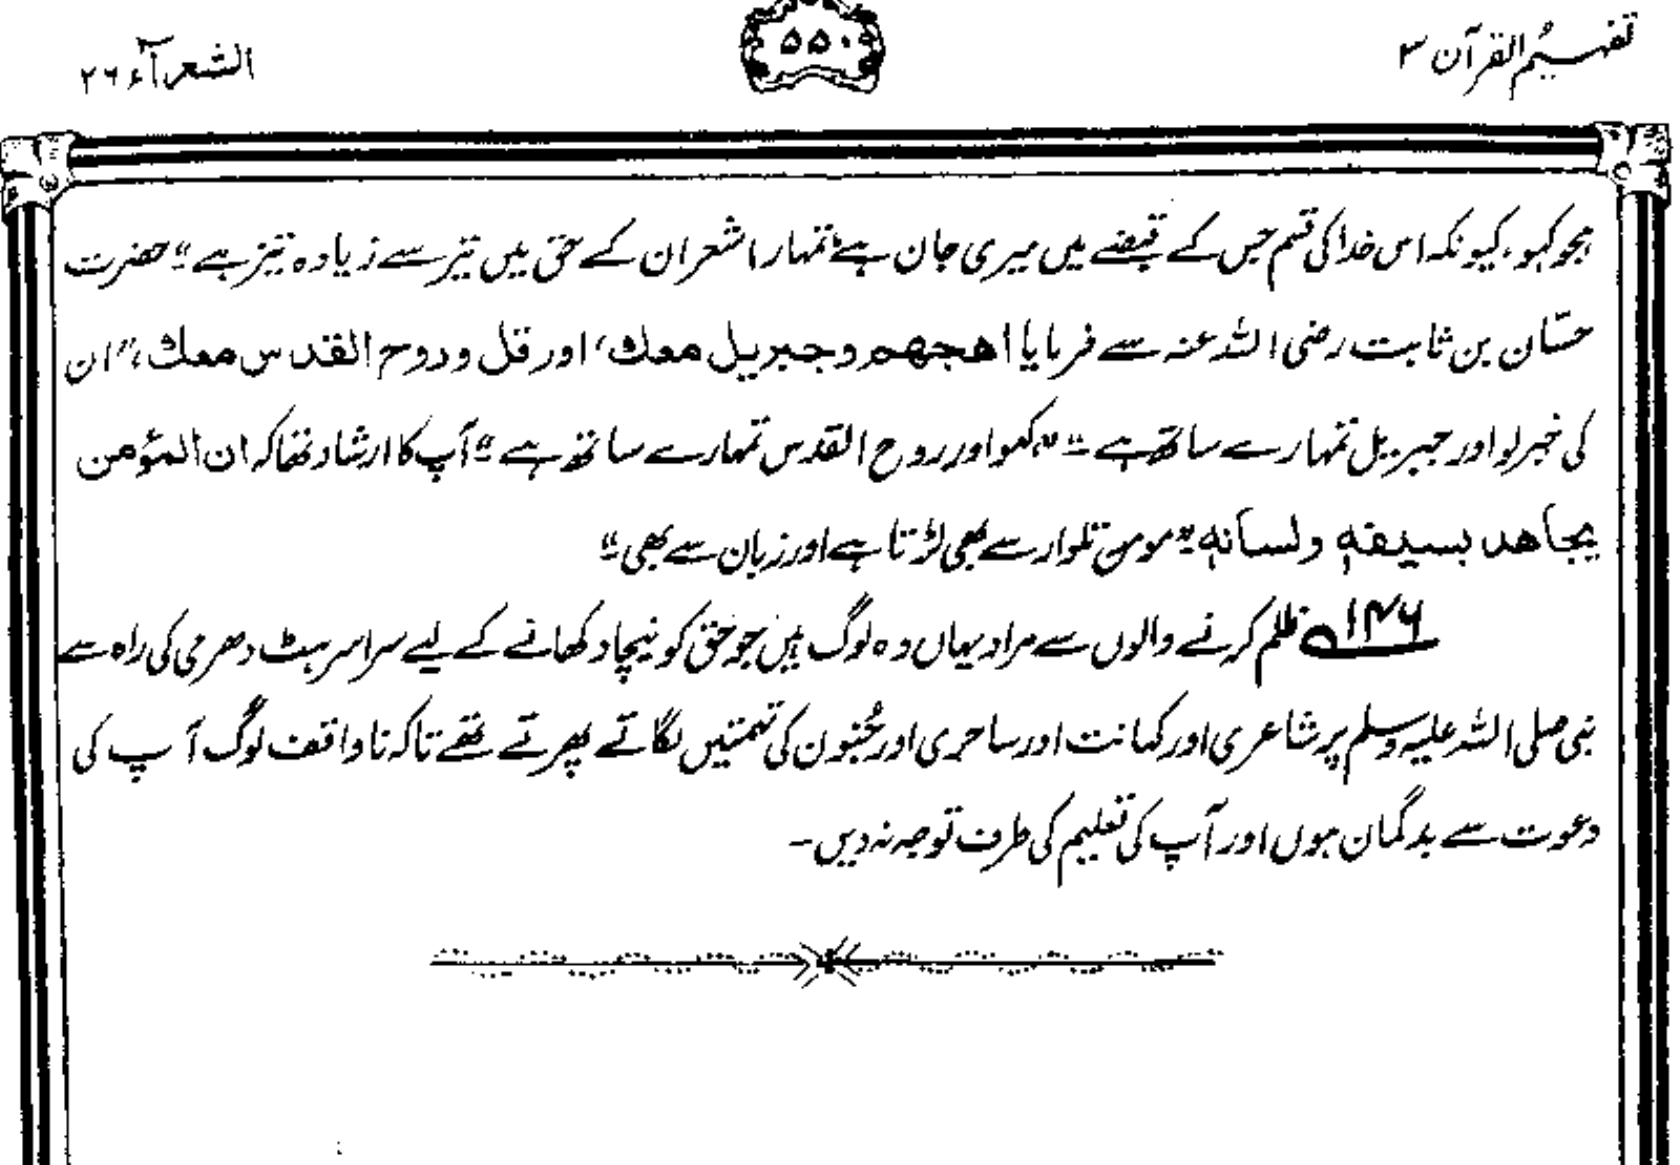 تفہیمُ القرآن ۳
۵۵۰
الشعرآء ۲۶
ہجو کہو، کیونکہ اس خدا کی قسم جس کے قبضے میں میری جان ہے، تمہارا شعر ان کے حق میں تیر سے زیادہ تیز ہے۔“ حضرت
حسّان بن ثابت رضی اللہ عنہ سے فرمایا اھجھم وجبریل معك، اور قل وروح القدس معك، ”ان
کی خبر لو اور جبریل تمہارے ساتھ ہے۔“ ”کہو اور روح القدس تمہارے ساتھ ہے۔“ آپ کا ارشاد تھا کہ ان المؤمن
یجاھد بسیفہٖ ولسانہٖ ”مومن تلوار سے بھی لڑتا ہے اور زبان سے بھی۔“
۱۴۶ ظلم کرنے والوں سے مراد یہاں وہ لوگ ہیں جو حق کو نیچا دکھانے کے لیے سراسر ہٹ دھرمی کی راہ سے
نبی صلی اللہ علیہ وسلم پر شاعری اور کہانت اور ساحری اور جُنون کی تہمتیں لگاتے پھرتے تھے تاکہ ناواقف لوگ آپ کی
دعوت سے بدگمان ہوں اور آپ کی تعلیم کی طرف توجہ نہ دیں۔